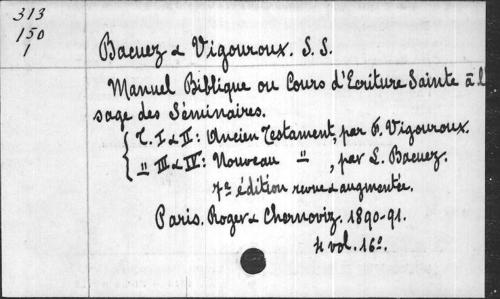 313
150
1
Bacuez & Vigouroux. S. S.
Manuel Biblique ou Cours d'Ecriture Sainte à l
sage des Séminaires.
T. I & II: Ancien Testament, par F. Vigouroux.
" III & IV: Nouveau " , par L. Bacuez.
7e édition revue & augmentée.
Paris. Roger & Chernoviz. 1890-91.
4 vol. 16º.